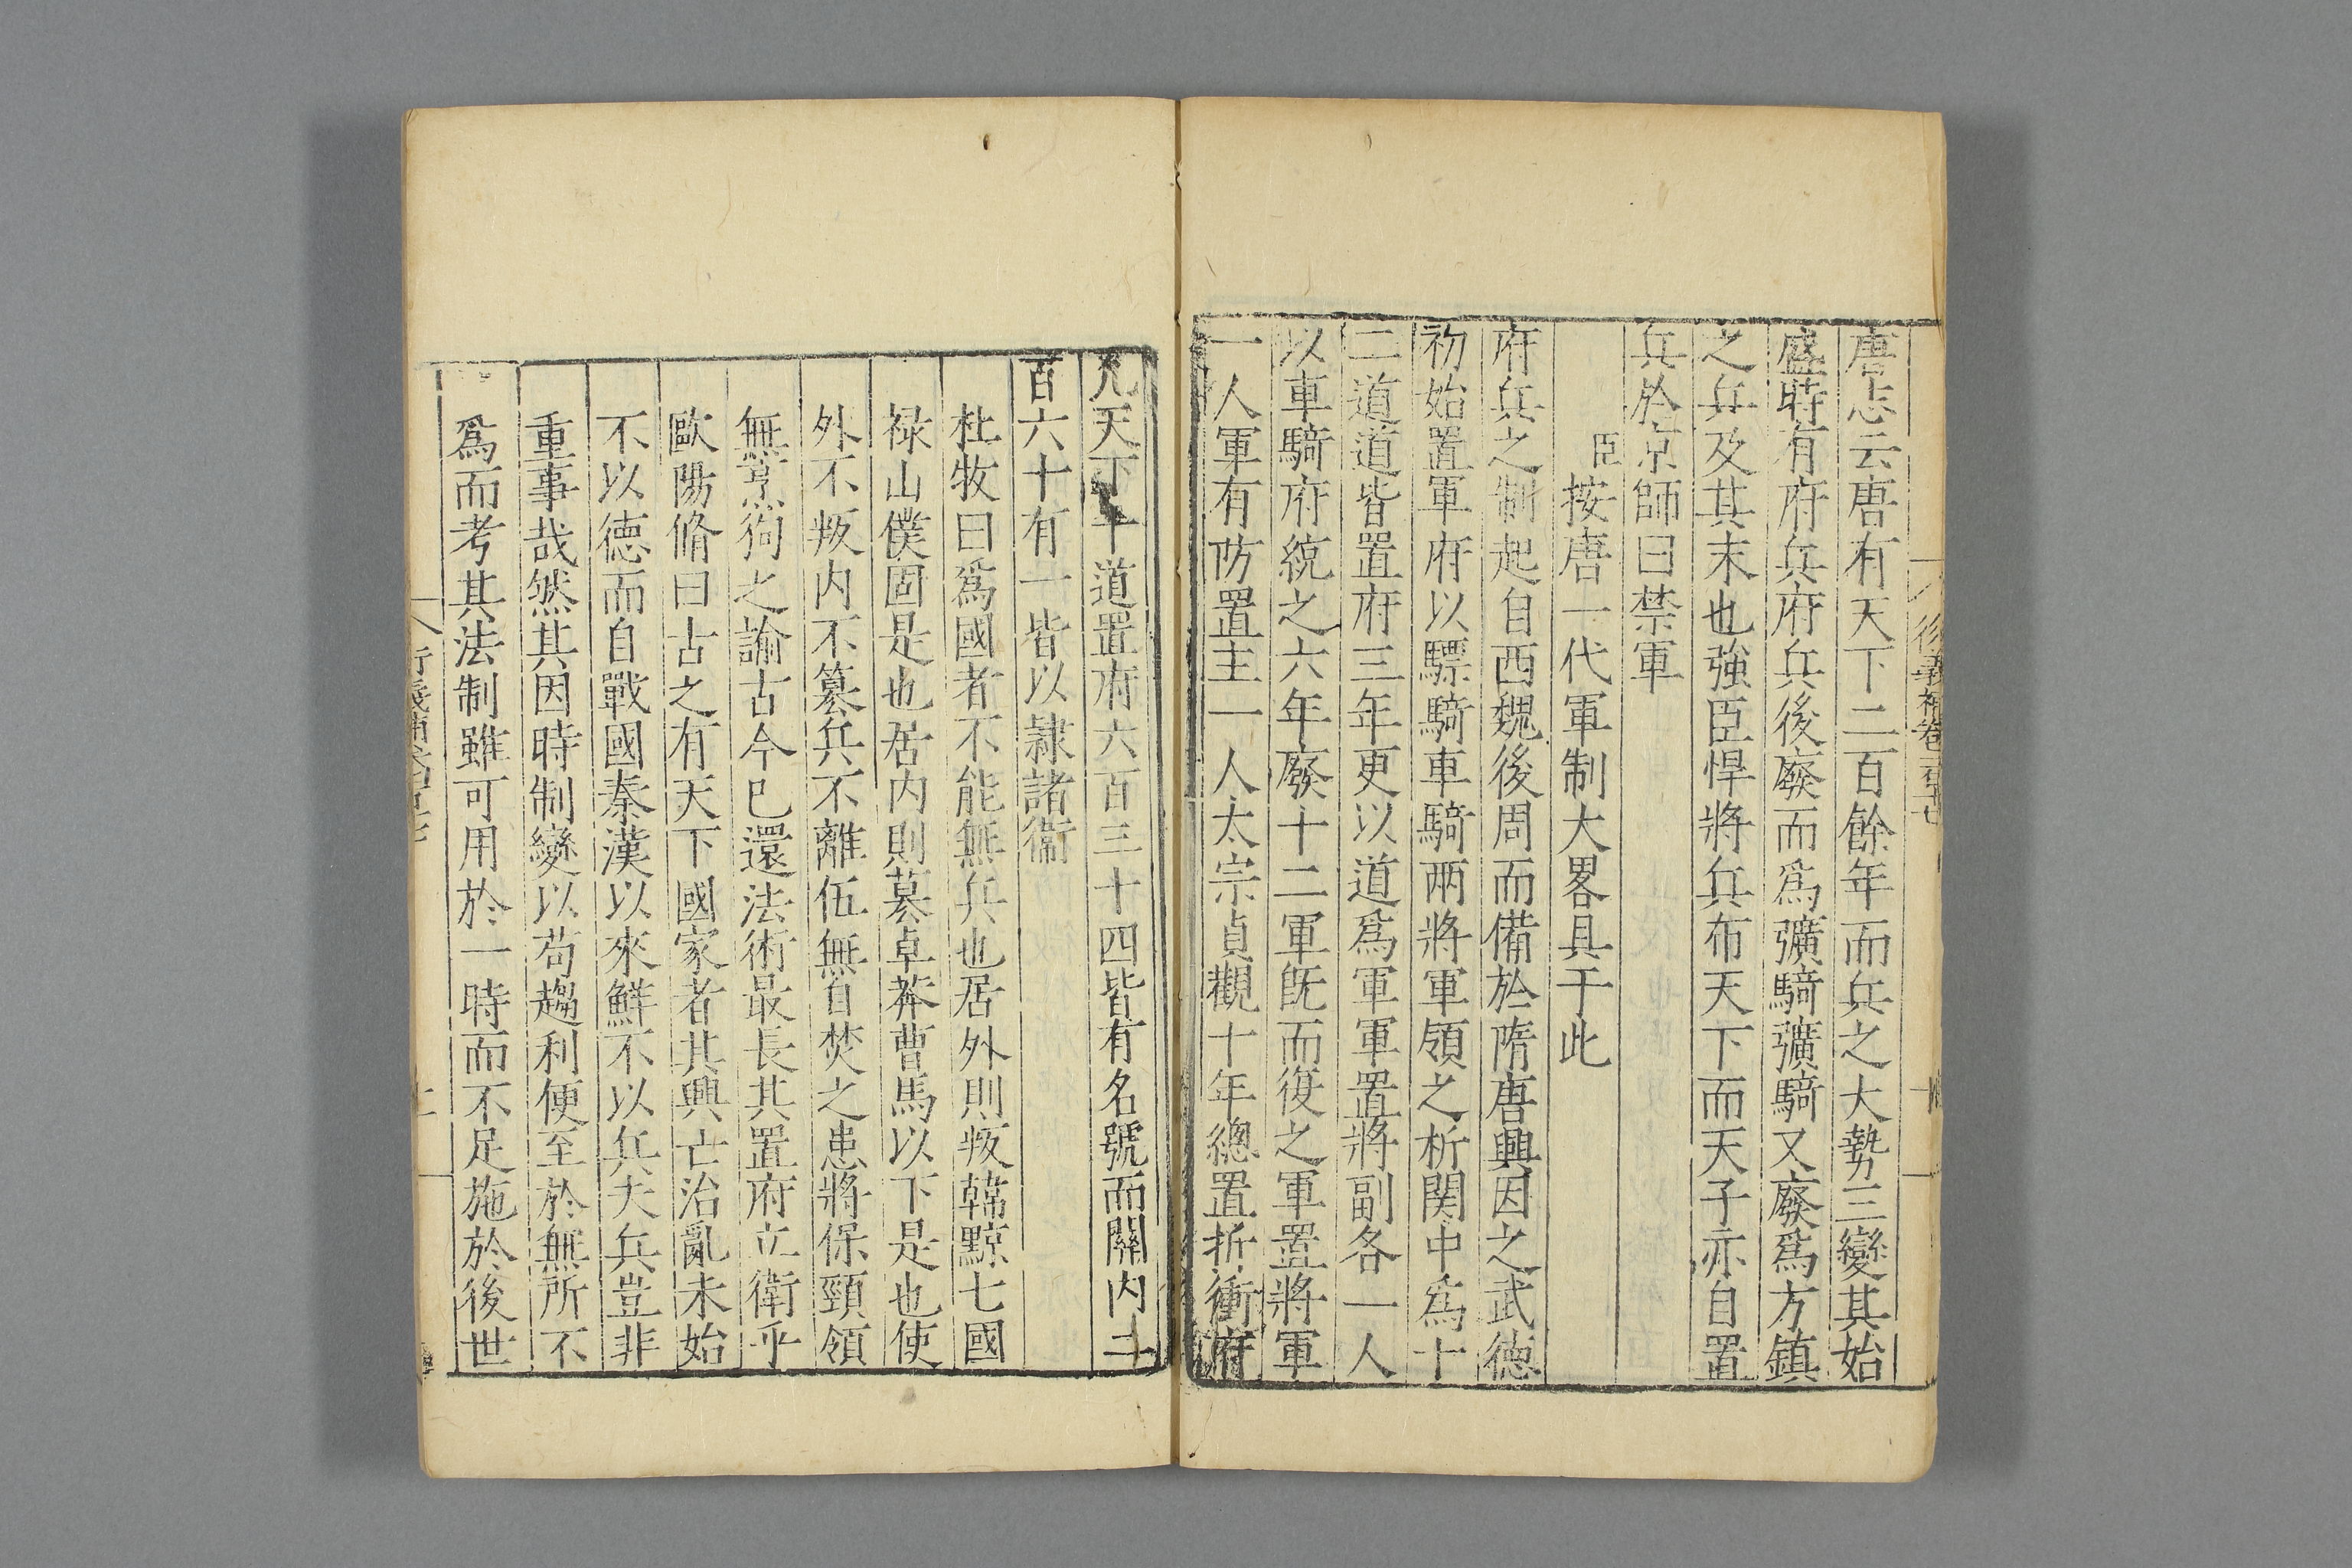 唐志云唐有天下二百餘年而兵之大勢三變其始
盛時有府兵府兵後廢而爲彍騎彍騎又廢爲方鎮
之兵及其末也強臣悍將兵布天下而天子亦自置
兵於京師曰禁軍
臣按唐一代軍制大畧具于此
府兵之制起自西魏後周而備於隋唐興因之武德
初始置軍府以驃騎車騎兩將軍領之析関中爲十
二道道皆置府三年更以道爲軍軍置將副各一人
以車騎府統之六年廢十二軍既而復之軍置將軍
一人軍有防置主一人太宗貞觀十年總置折衝府
凡天下十道置府六百三十四皆有名號而關内二
百六十有一皆以隷諸衞
杜牧曰爲國者不能無兵也居外則叛韓黥七國
禄山僕固是也居内則簒卓莽曹馬以下是也使
外不叛内不簒兵不離伍無自焚之患將保頸領
無烹狗之諭古今已還法術最長其置府立衛乎
歐陽脩曰古之有天下國家者其興亡治亂未始
不以德而自戰國秦漢以來鮮不以兵夫兵豈非
重事哉然其因時制變以苟趨利便至於無所不
爲而考其法制雖可用於一時而不足施於後世